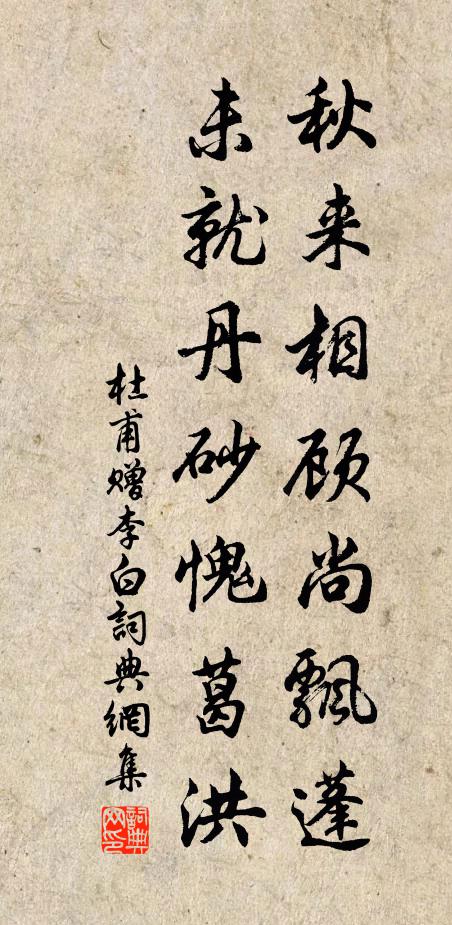 秋来相顾尚飘蓬
未就丹砂愧葛洪
杜甫赠李白詞典網集
詞典
网印